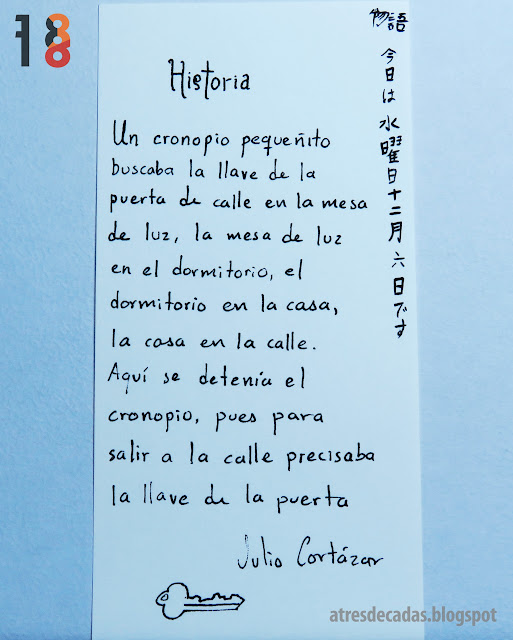 188
物語
今日は水曜日十二月六日です
Historia
Un cronopio pequeñito
buscaba la llave de la
puerta de calle en la mesa
de luz, la mesa de luz
en el dormitorio, el
dormitorio en la casa,
la casa en la calle.
Aquí se detenía el
cronopio, pues para
salir a la calle precisaba
la llave de la puerta
Julio Cortázar
atresdecadas.blogspot